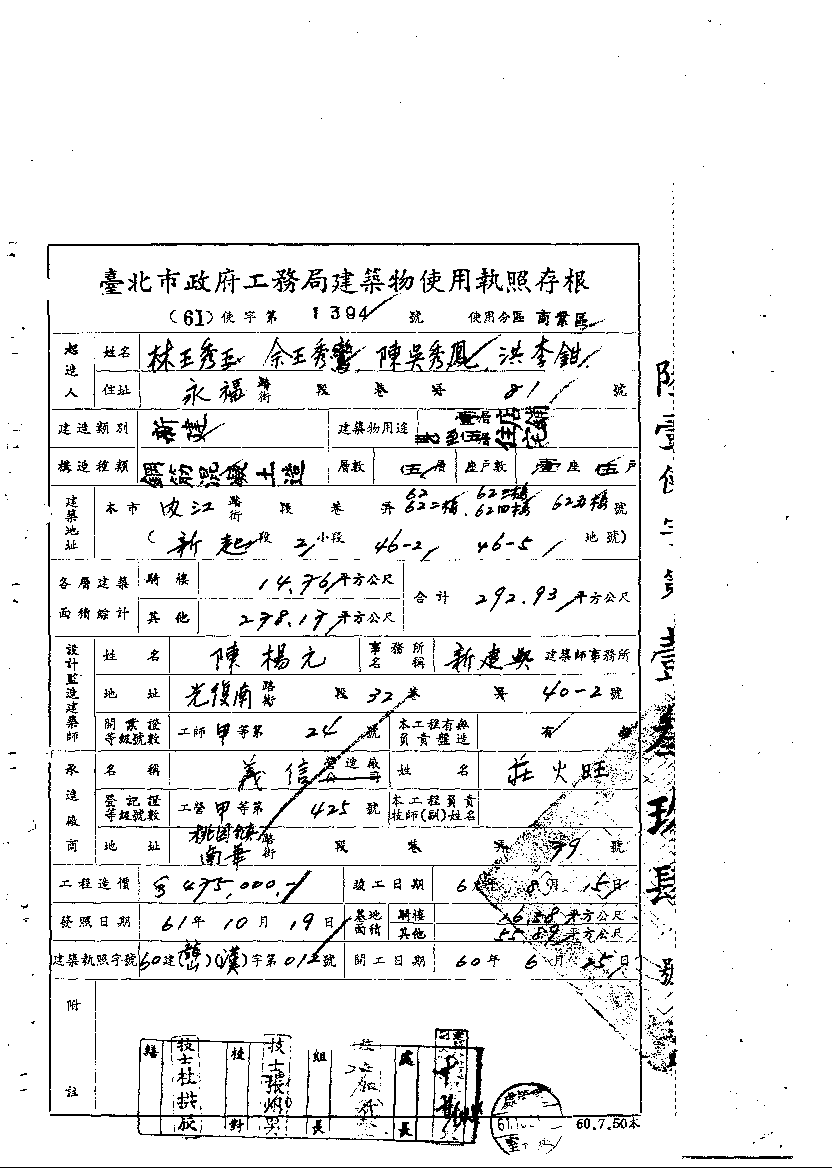 臺北市政府工務局建築物使用執照存根
(61)使字第 1394 號 使用分區 商業區
起造人 姓名 林王秀玉 余王秀鸞 陳吳秀鳳 洪李鉗
住址 永福 路街 段 巷 弄 81 號
建造類別 新建 建築物用途 壹層店舖 住宅
構造種類 鋼筋混凝土造 層數 伍層 座戶數 壹座伍戶
建築地址 本市 內江 路街 段 巷 弄 62 62二樓 62三樓 62四樓 62五樓 號
(新起段 2 小段 46-2 46-5 地號)
各層建築面積綜計 騎樓 14.76 平方公尺 合計 292.93 平方公尺
其他 278.17 平方公尺
設計監造建築師 姓名 陳楊元 事務所名稱 新建興 建築師事務所
地址 光復南 路街 段 32 巷 弄 40-2 號
開業證等級號數 工師甲等第 24 號 本工程有無負責監造 有
承造廠商 名稱 義信 營造廠 公司 姓名 莊火旺
登記證等級號數 工營甲等第 425 號 本工程負責技師(副)姓名
地址 桃園鎮南華 路街 段 巷 弄 79 號
工程造價 $475,000.- 竣工日期 61年 8月 15日
發照日期 61年 10月 19日 基地面積 騎樓 16.58 平方公尺
其他 55.89 平方公尺
建築執照字號 60建( )(漢)字第012號 開工日期 60年 6月 25日
附註
繕 技士杜 校對 技士張炳男 組長 處長
60.7.50本